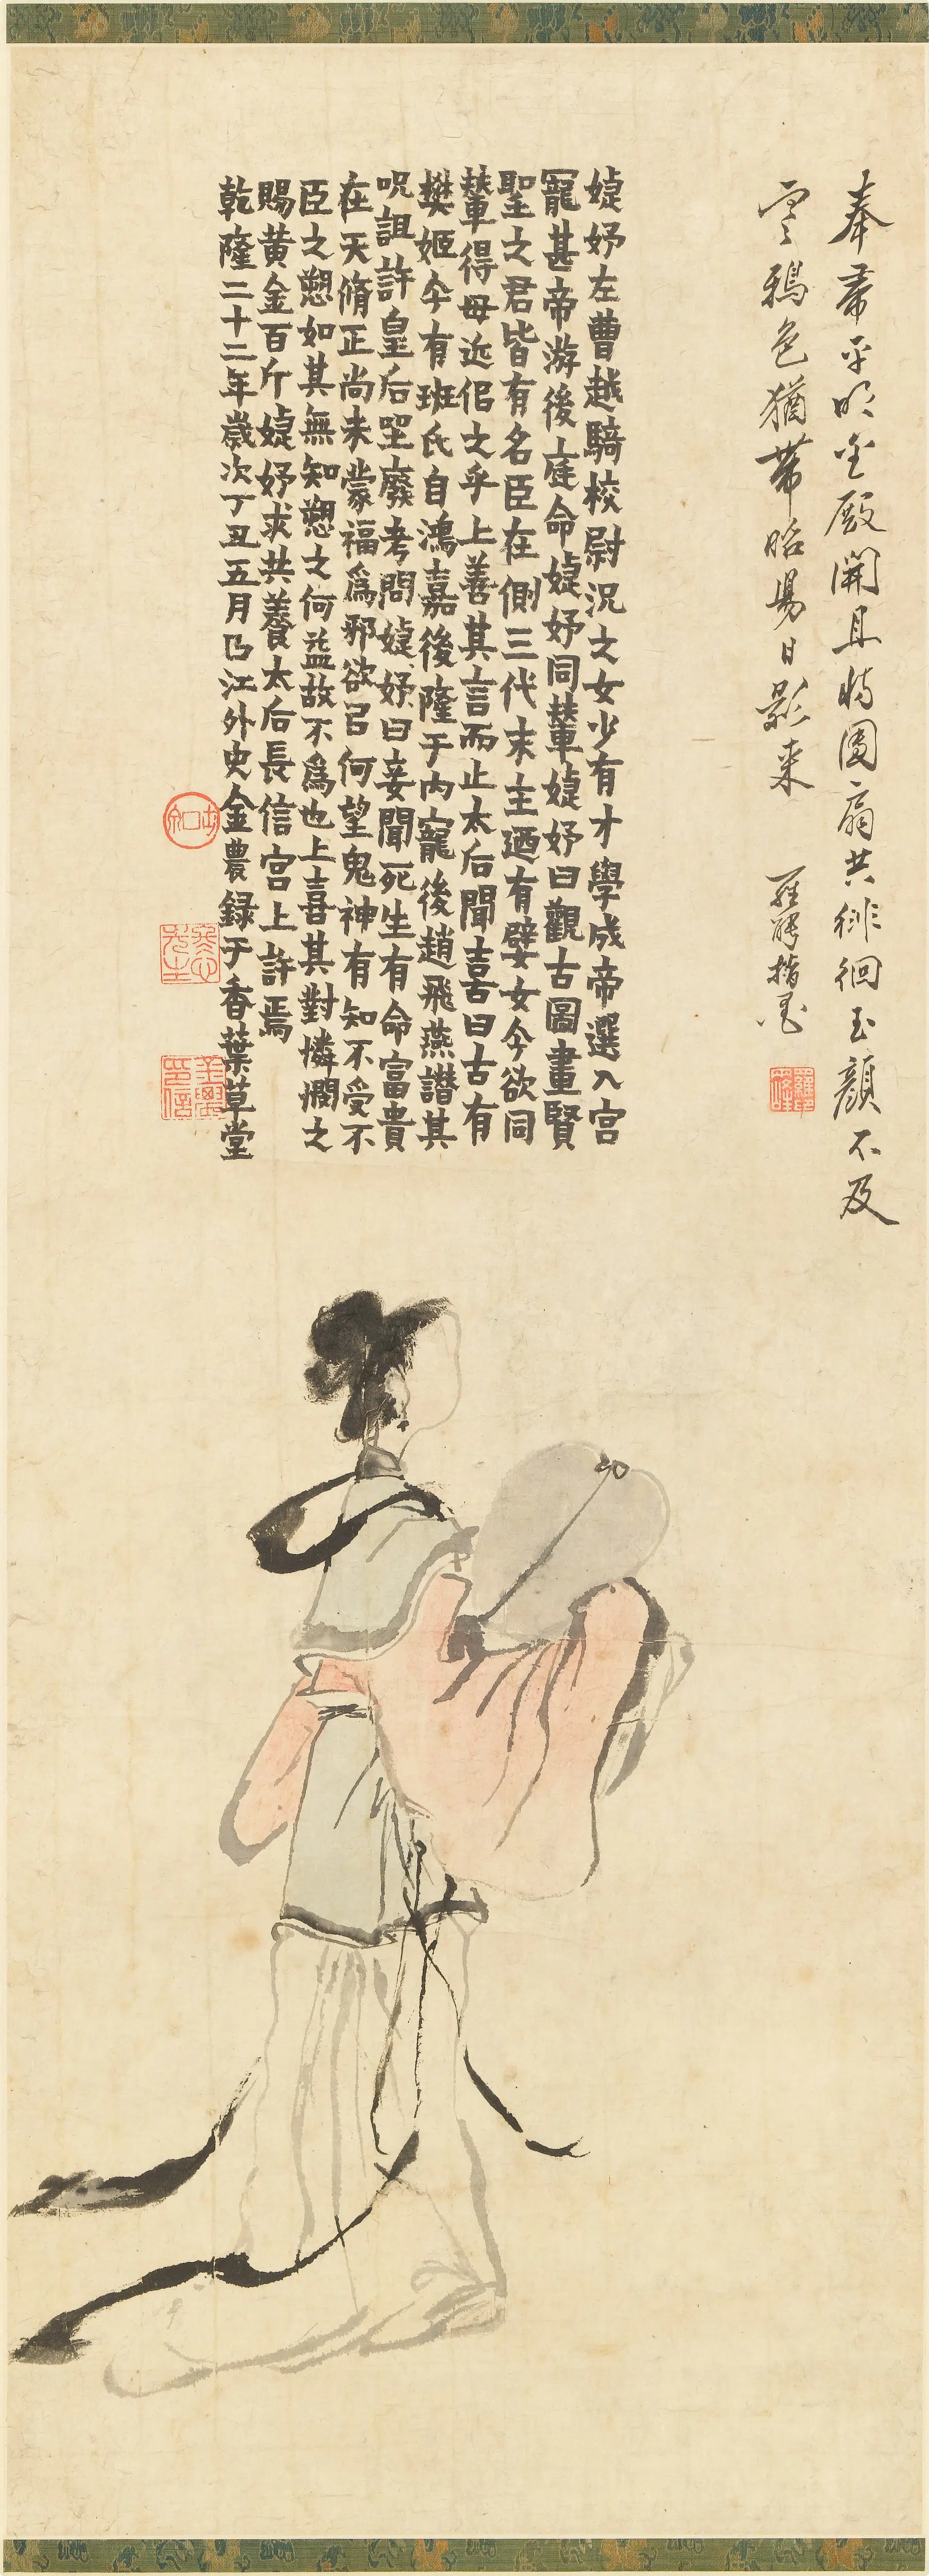 奉帚平明金殿開且將團扇共徘徊玉顏不及
寒鴉色猶帶昭陽日影来　羅聘指墨
婕妤左曹越騎校尉況之女少有才學成帝選入宮
寵甚帝游後庭命婕妤同輦婕妤曰觀古圖畫賢
聖之君皆有名臣在側三代末主迺有嬖女今欲同
輦得毋近佀之乎上善其言而止太后聞喜曰古有
樊姬今有班氏自鴻嘉後隆于内寵後趙飛燕譖其
呪詛許皇后坐廢考問婕妤曰妾聞死生有命富貴
在天脩正尚未蒙福為邪欲㠯何望鬼神有知不受不
臣之愬如其無知愬之何益故不為也上喜其對憐憫之
賜黄金百斤婕妤求共養太后長信宮上許焉
乾隆二十二年歲次丁丑五月㠯江外史金農録于香葉草堂